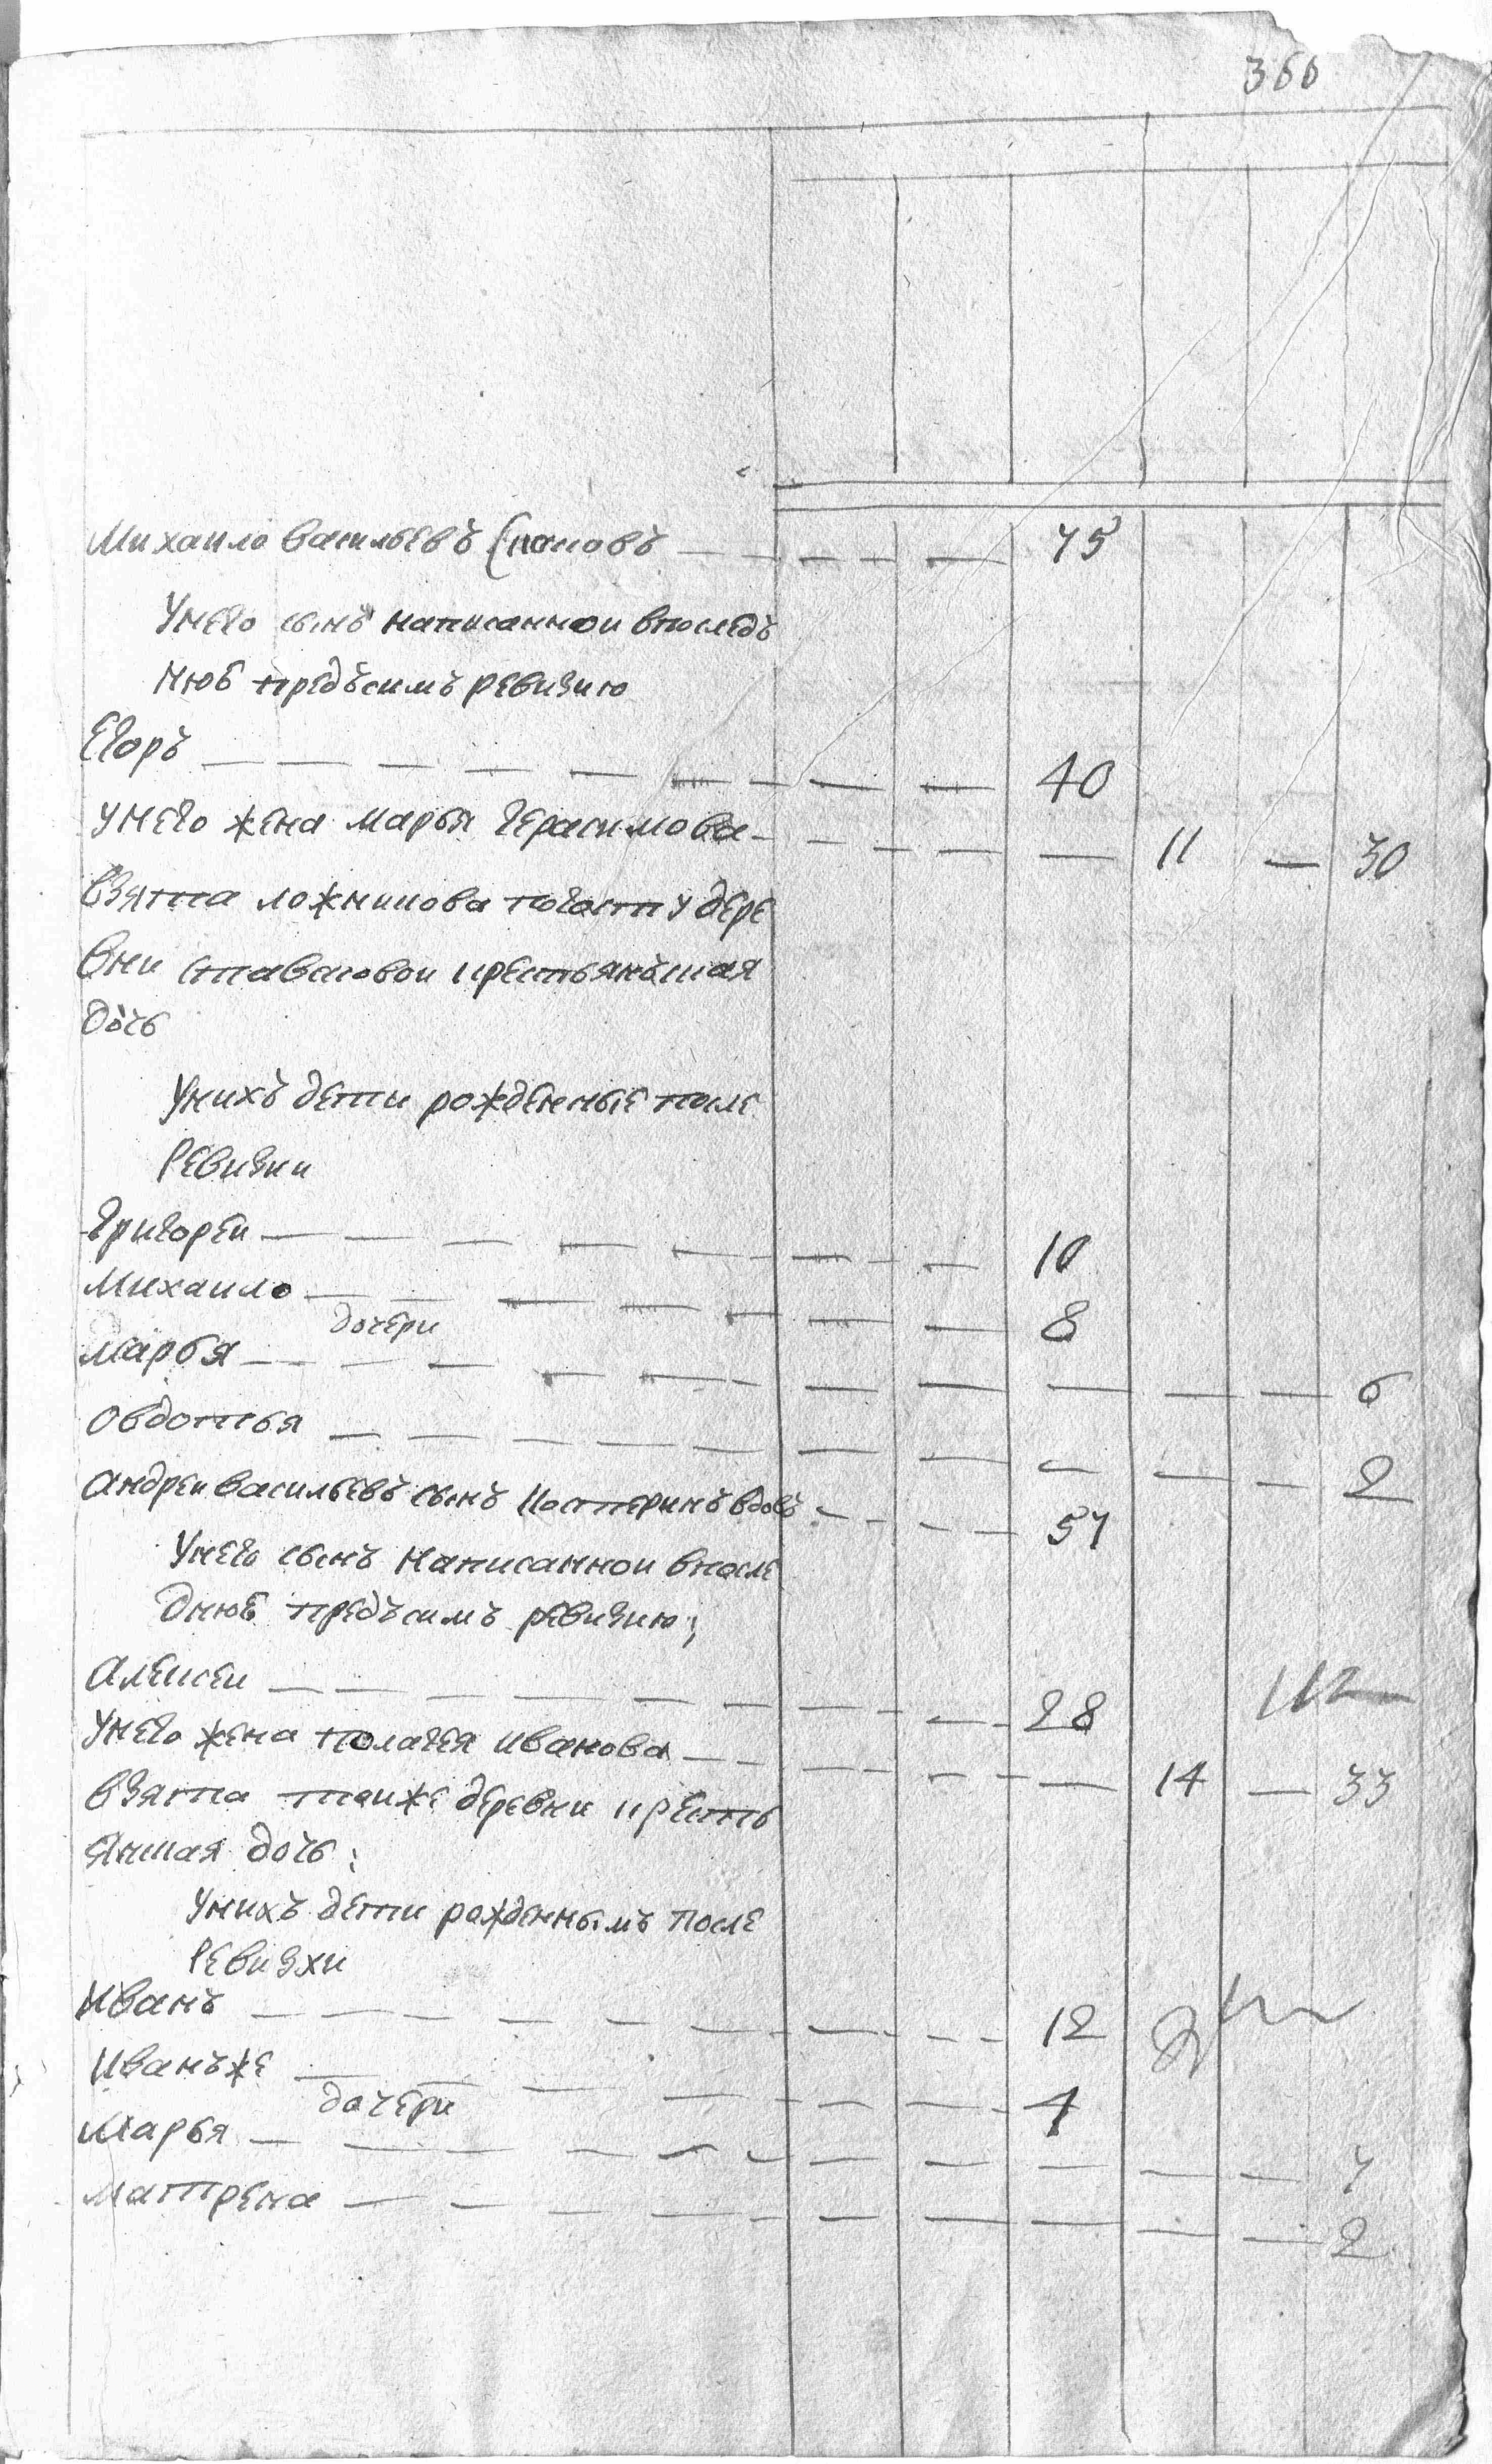 360
Михаило васильевъ — — — — — 75
Унего сынъ написанной впоследъ
нюю предъсимъ ревизию
Егоръ — — — — — — — — — 40
унего жена марья герасимова — — — — — 11 — 30
взята погосту дере
вни крестьянъская
дочь
Унихъ дети рожденные после
Ревизии
Григореи — — — — — — — — 10
Михаило — — — — — — — — 8
дочери
Марья — — — — — — — — — — — 6
Овдотья — — — — — — — — — — — 2
андреи васильевъ сынъ вдовъ — — — — 57
Унего сынъ написаннои впосле
днюю предъсимъ ревизию;
алексеи — — — — — — — — 28
унего жена полагея иванова — — — — — — 14 — 33
взята тоиже деревни кресть
янская дочь:
Унихъ дети рожденнымъ после
Ревизхи
Иванъ — — — — — — — — — 12
Иванъже — — — — — — — 4
дочери
Марья — — — — — — — — — — — 7
матрена — — — — — — — — — — 2